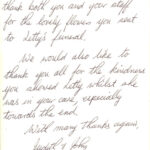 thank both you and your staff
for the lovely flowers you sent
to Letty's funeral.
We would also like to
thank you all for the kindness
you showed Letty whilst she
was in your care, especially
towards the end.
With many thanks again,
Judith & John